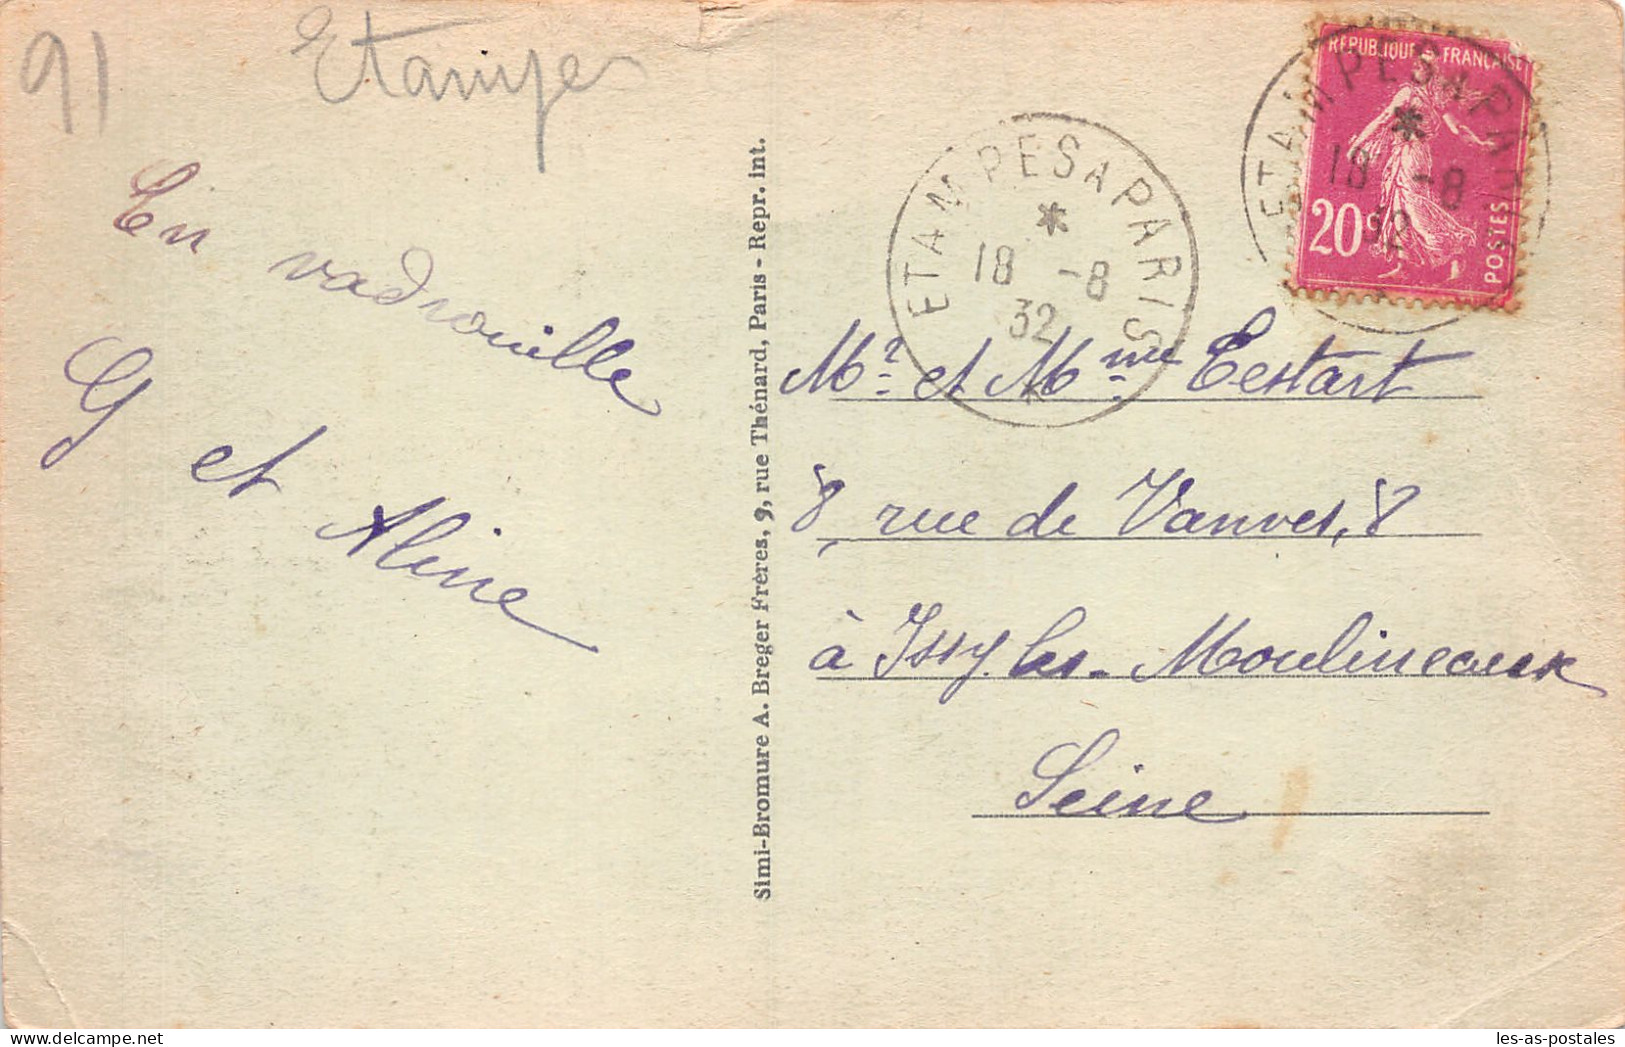 91
Etampes
En vadrouille
G et Aline
Simi-Bromure A. Breger Frères, 9, rue Thénard, Paris - Repr. int.
ETAMPES A PARIS
18 -8
32
REPUBLIQUE FRANÇAISE
20c
POSTES
ETAMPES A PARIS
18 -8
32
Mr. et Mme Testart
8, rue de Vanves, 8
à Issy les-Moulineaux
Seine
les-as-postales